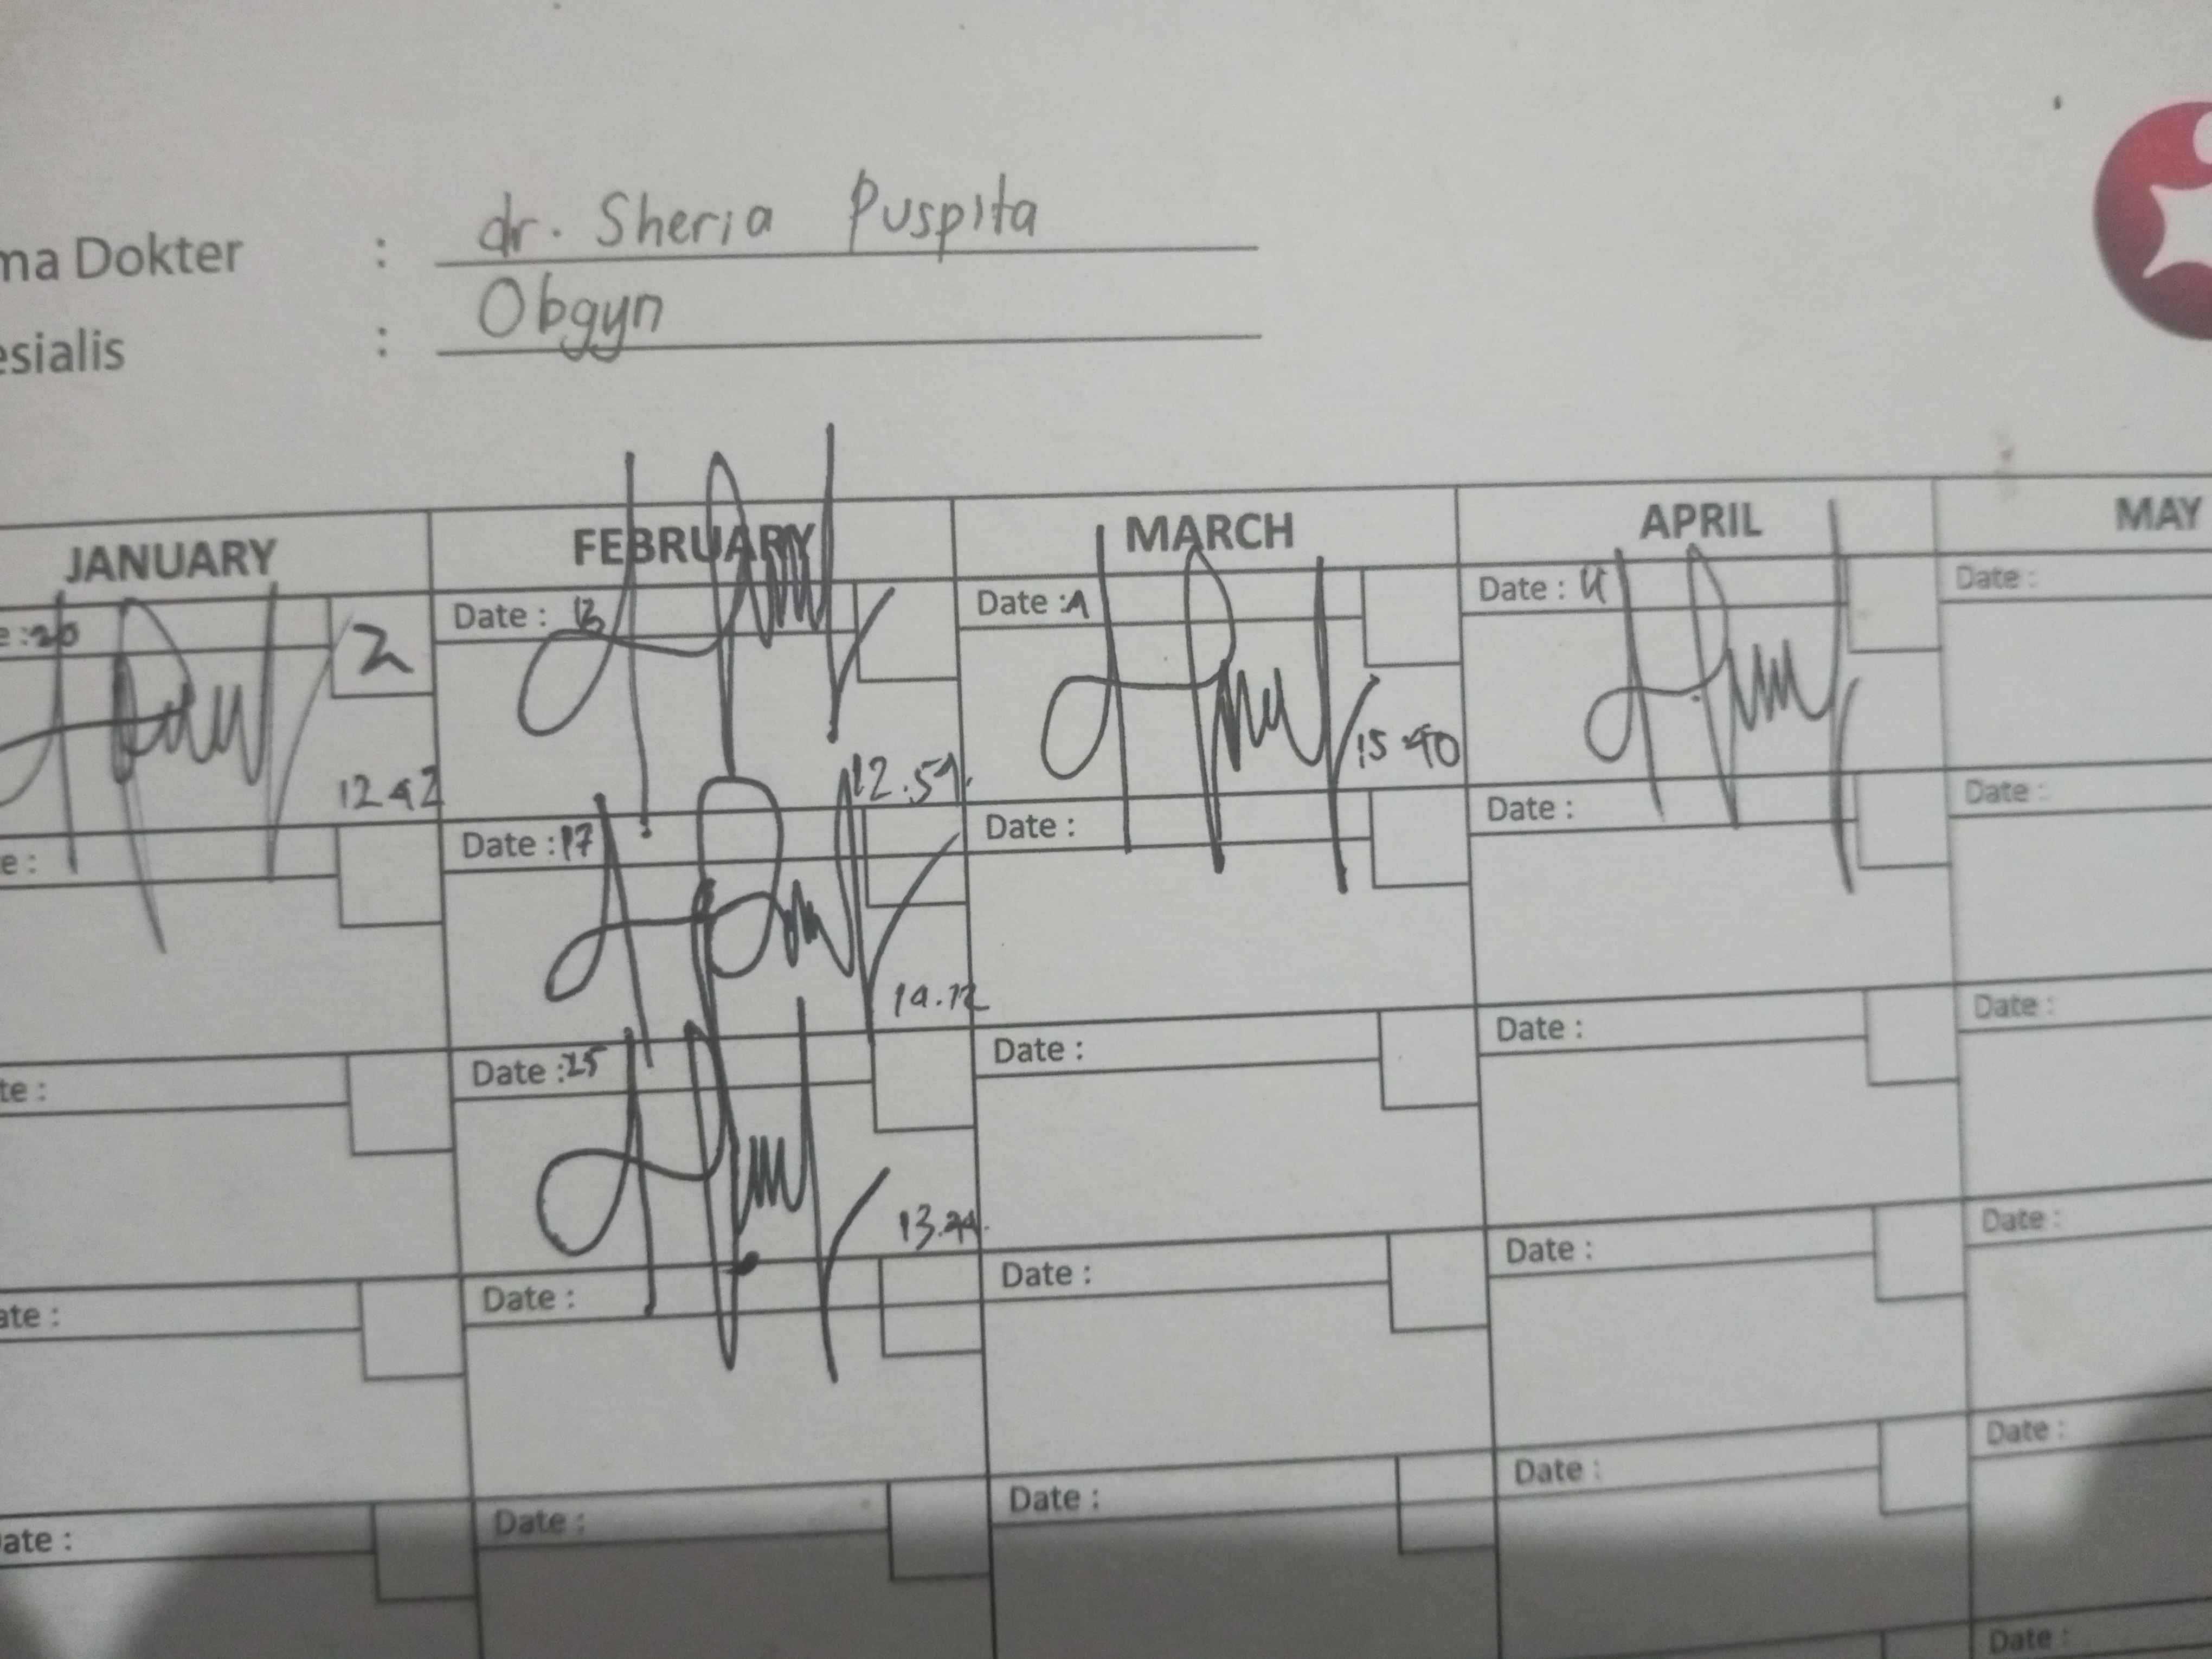 ma Dokter : dr. Sheria Puspita
esialis : Obgyn
JANUARY FEBRUARY MARCH APRIL MAY
e :20 2 Date : 13 Date : Date : Date :
12.42 12.51. 15.40
e : Date :17 Date : Date : Date :
14.12
te : Date :25 Date : Date : Date :
13.24.
ate : Date : Date : Date : Date :
ate : Date : Date : Date : Date :
Date :